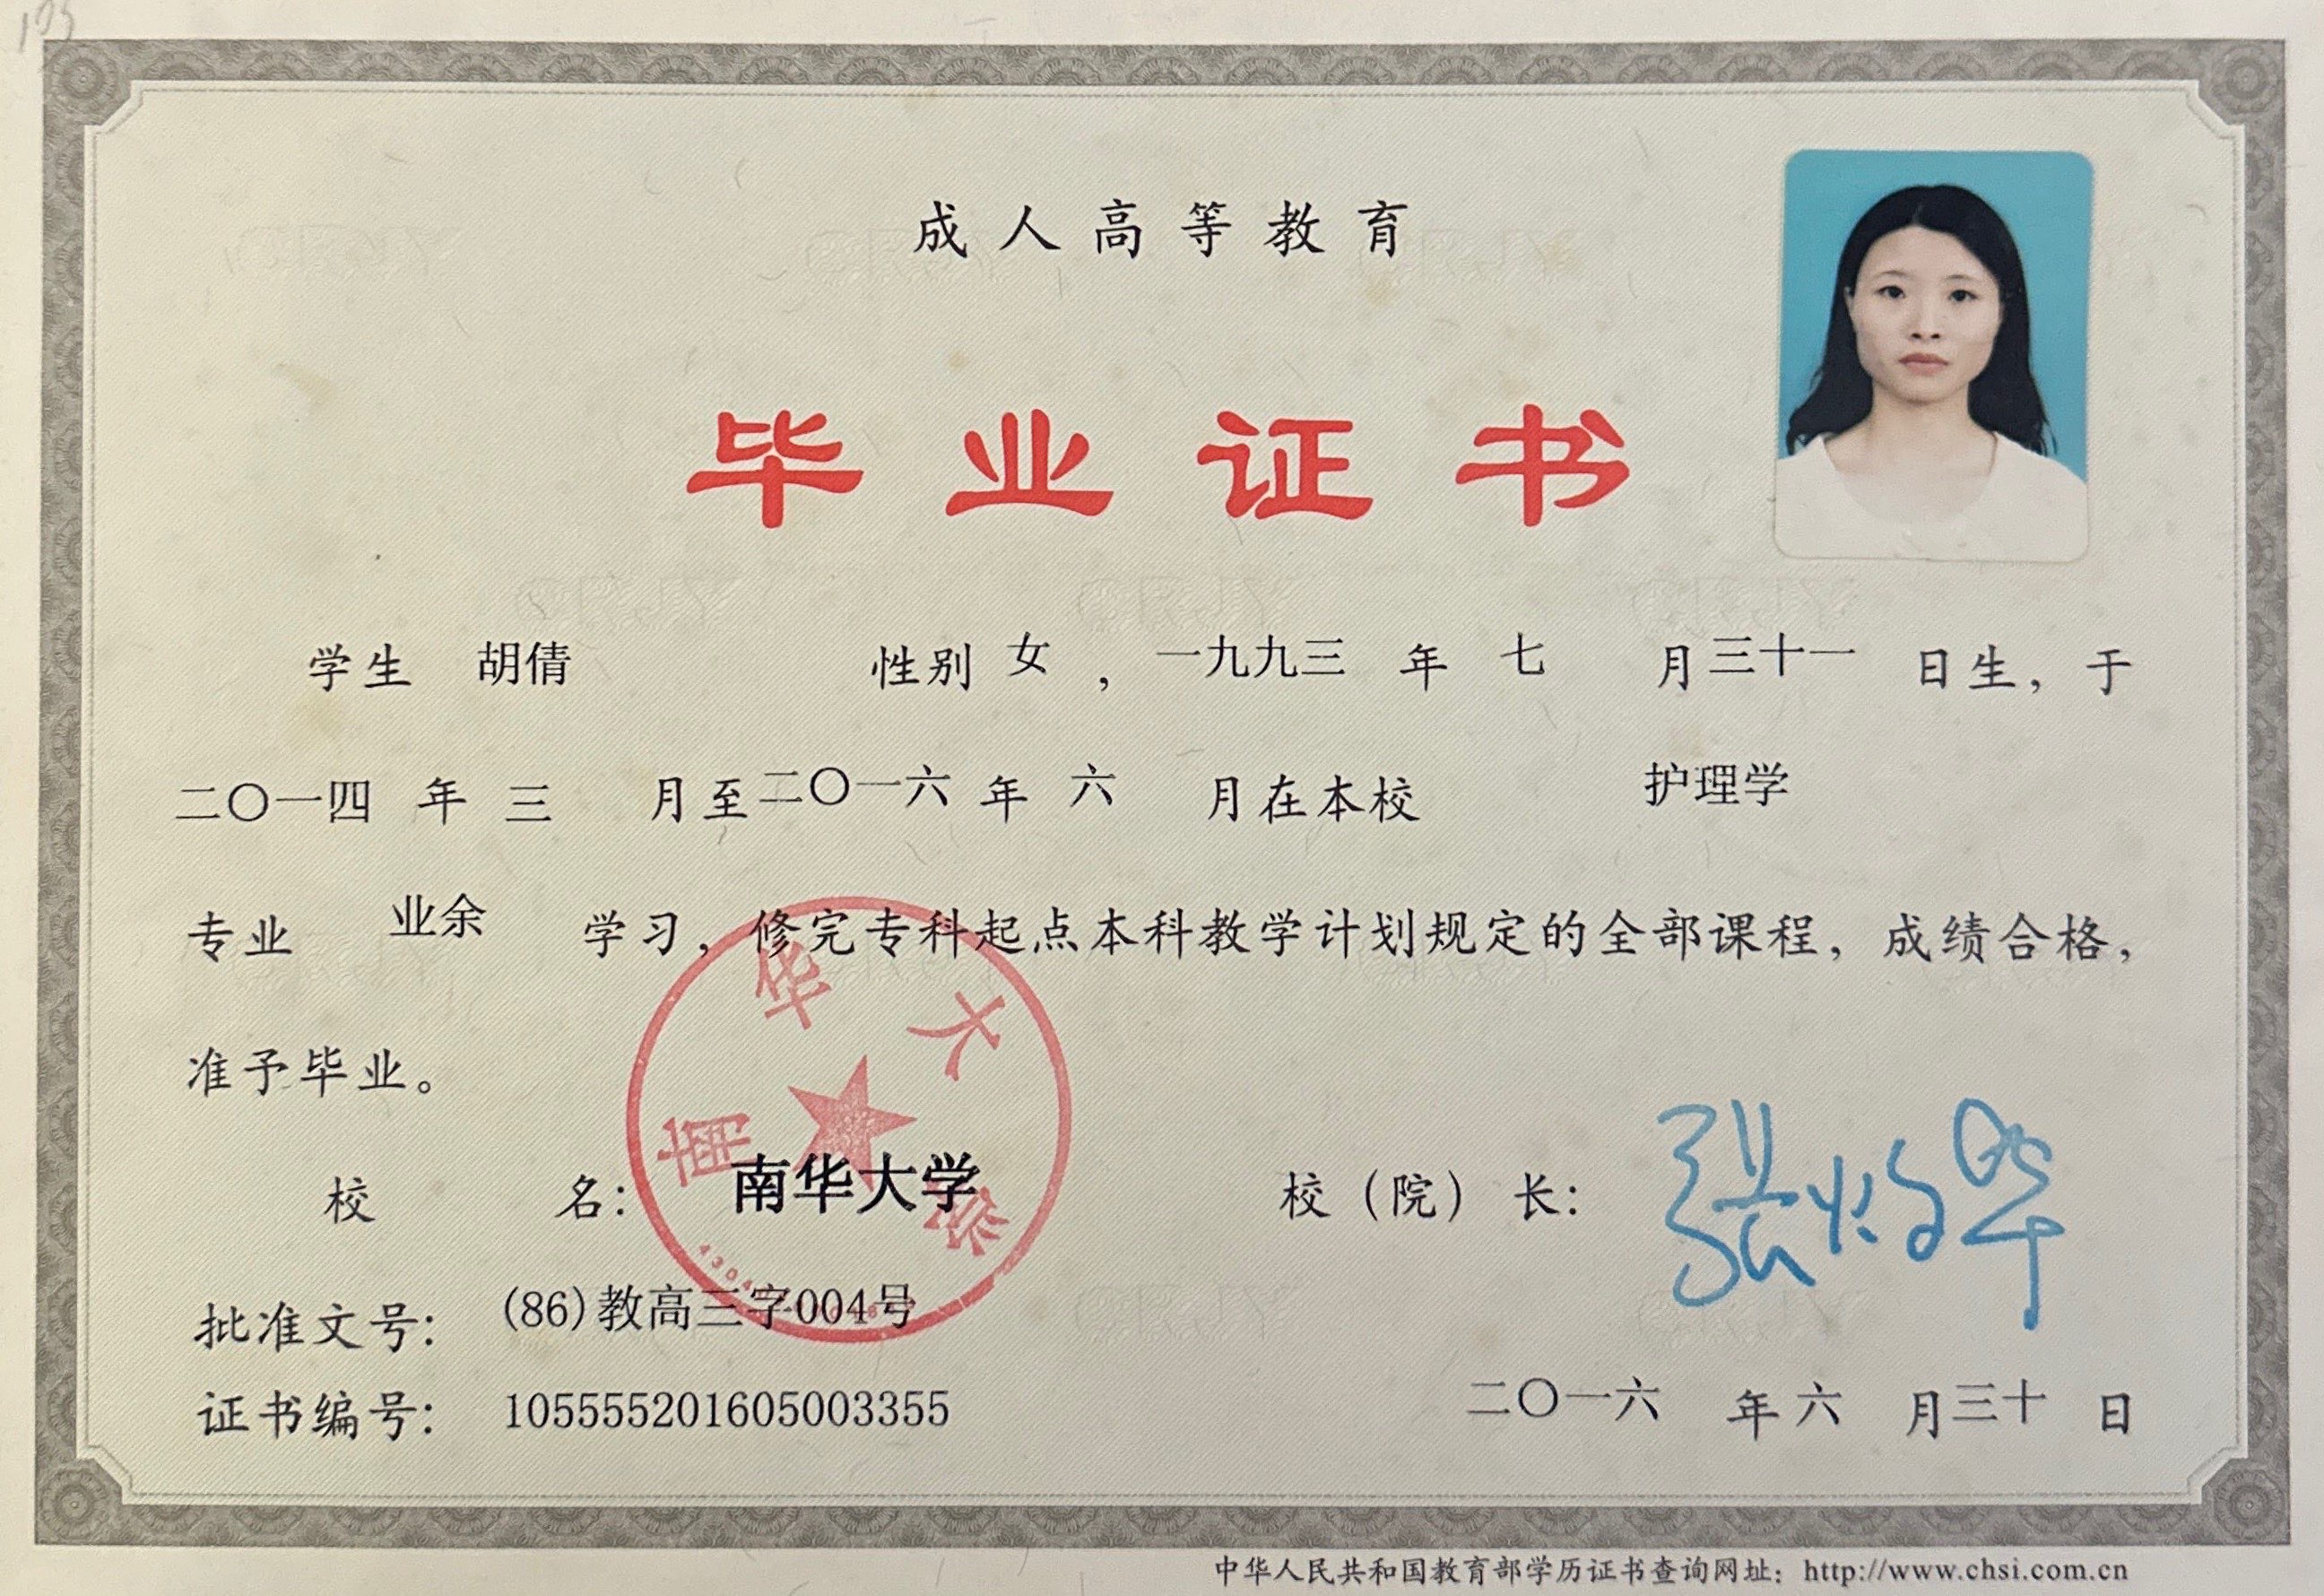 成人高等教育
毕业证书
学生 胡倩 性别 女 ，一九九三 年 七 月三十一 日生，于
二〇一四 年 三 月至二〇一六 年 六 月在本校 护理学
专业 业余 学习，修完专科起点本科教学计划规定的全部课程，成绩合格，
准予毕业。
南华大学
校 名： 南华大学 校（院）长：
批准文号： (86)教高三字004号
证书编号： 105555201605003355 二〇一六 年 六 月三十 日
中华人民共和国教育部学历证书查询网址：http://www.chsi.com.cn